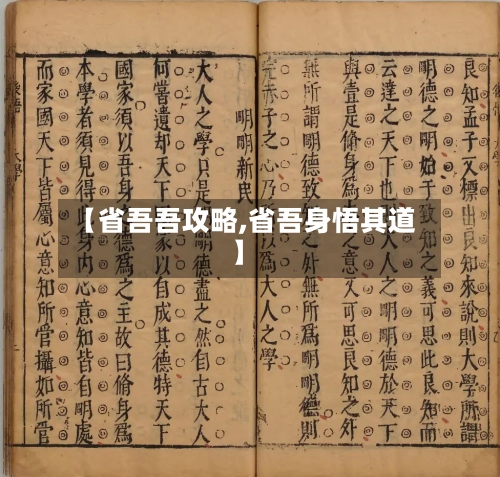 良知孟子又標出良知來說則大學所謂
明德之明始於明之義可思此良知而
云達之天下也大人之明明德於天下
與壹是皆以脩身為本又可思良知之外
無所謂明德致之外無所為明明德則
完赤子之心乃所以為大人之學
明明新史
大人之學只是明德盡之然自古大人
何嘗遺却天下國家以自成其德特天下
國家須以吾身明德為之主故曰脩身為
本學者須見得此身内心意知皆自明處
而家國天下皆屬心意知所管攝如所管
後語 大學
【省吾吾攻略,省吾身悟其道
】